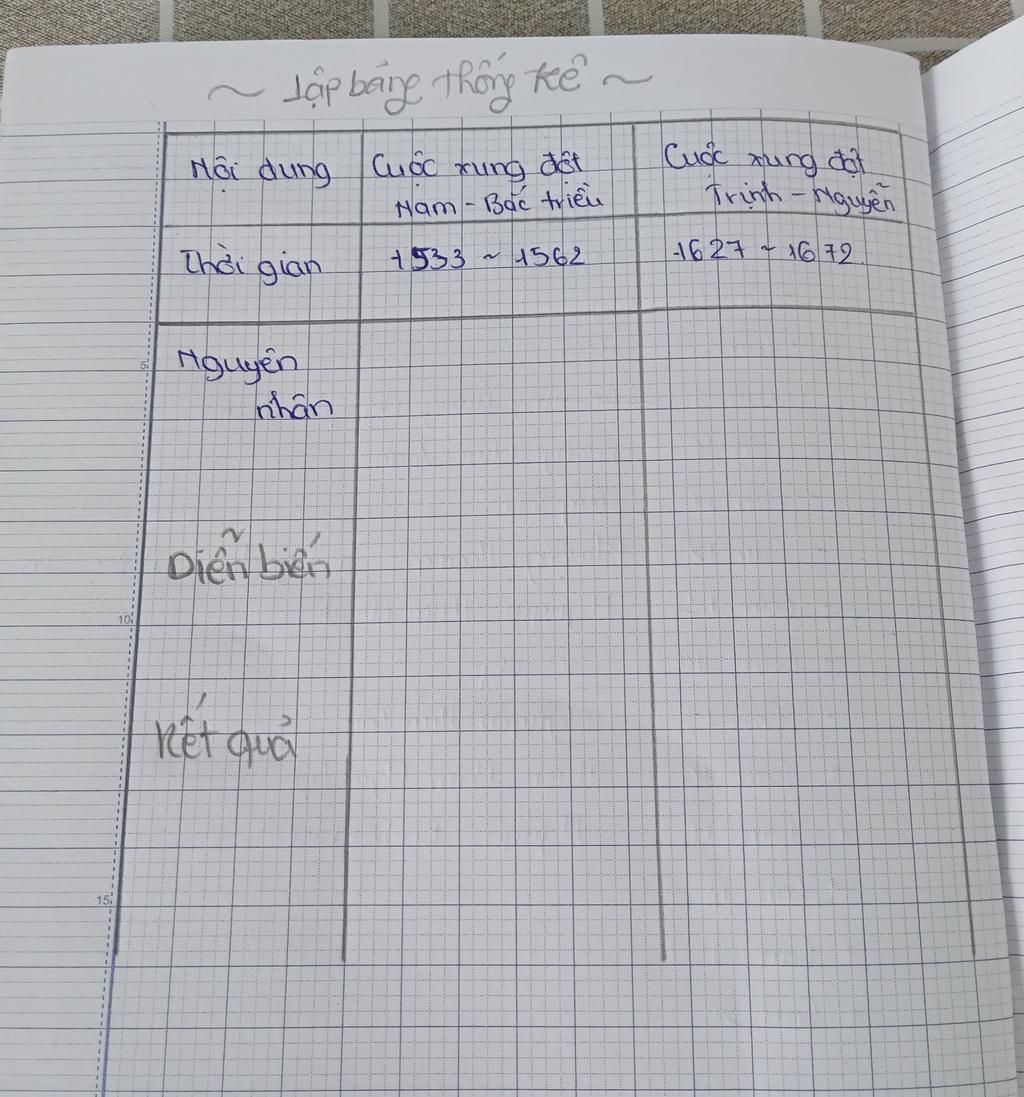 ~ Lập bảng thống kê ~
Nội dung
Cuộc xung đột
Nam - Bắc triều
Cuộc xung đột
Trịnh - Nguyễn
Thời gian
1533 ~ 1562
1627 ~ 1672
Nguyên
nhân
Diễn biến
Kết quả
5
10
15